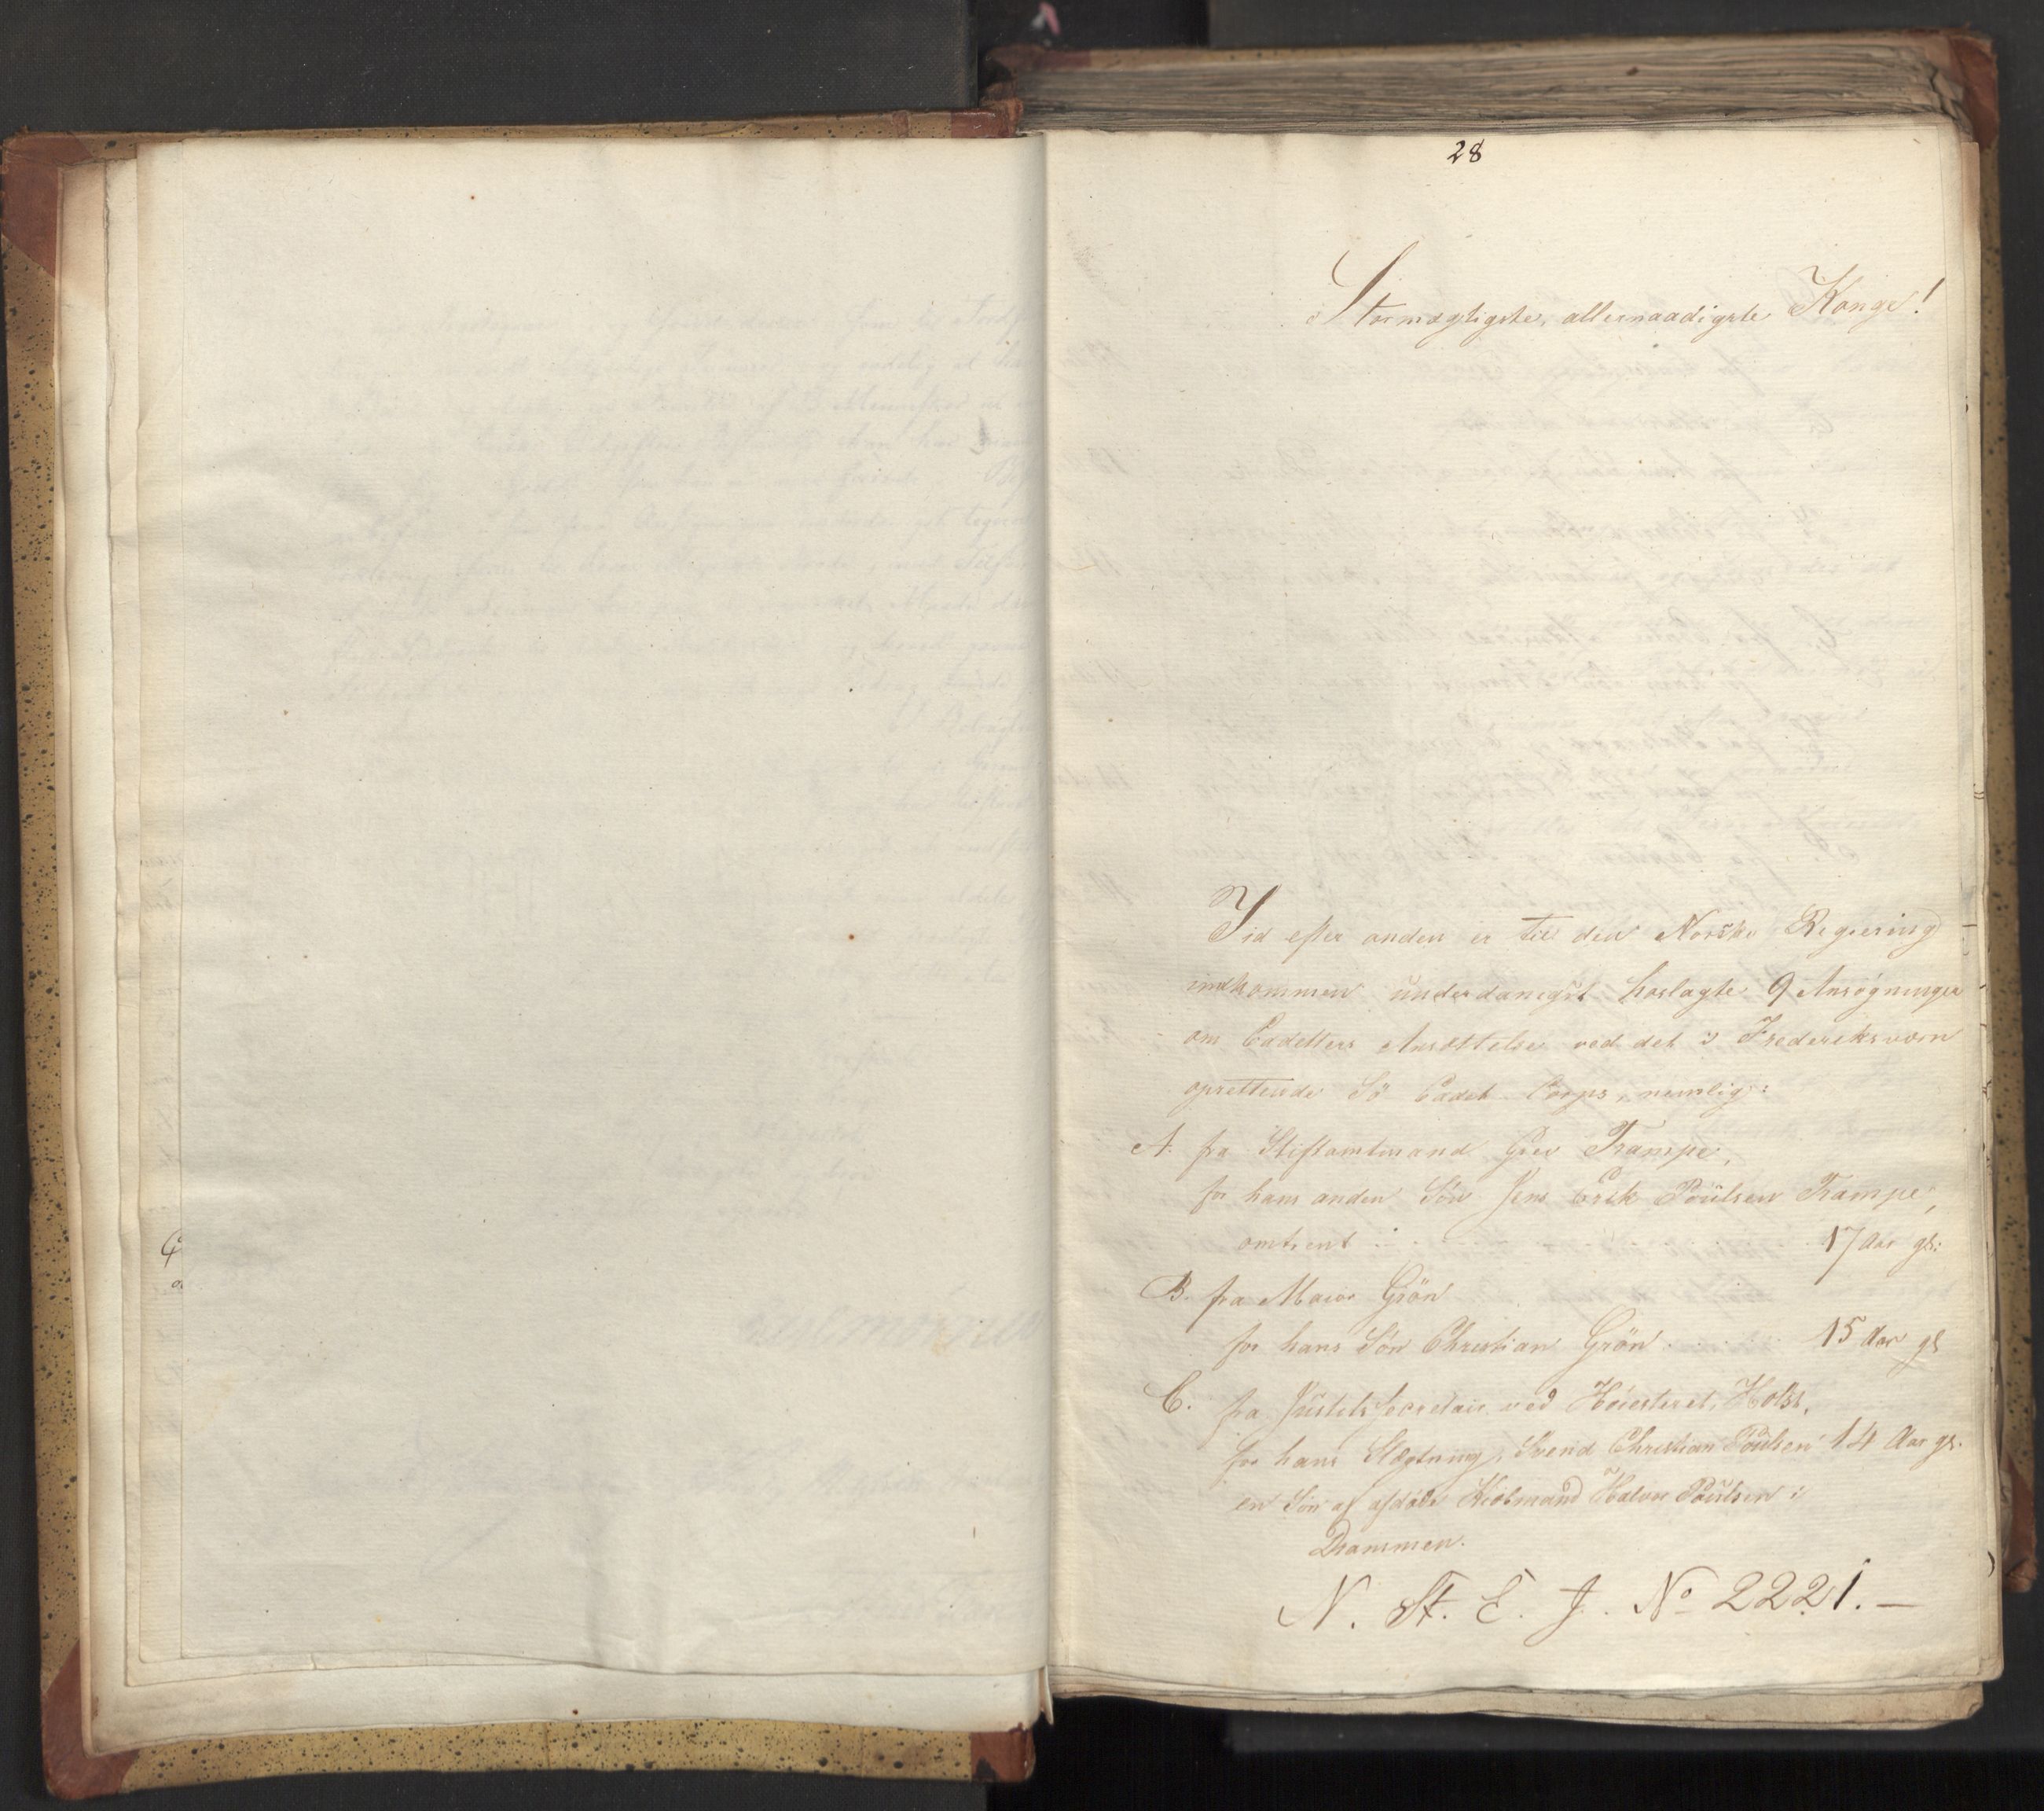 28
Stormægtigste, allernaadigste Konge!
Tid efter anden er til den Norske Regiering
indkommen underdanigst hoslagte 9 Ansøgninger
om Cadetters Ansættelse ved det i Frederiksværn
oprettende Sö Cadet Corps, nemlig:
A. fra Stiftamtmand Grev Trampe,
for hans anden Sön Jens Erik Poülsen Trampe,
omtrent . . . 17 Aar gl:
B. fra Maior Grön
for hans Sön Christian Grön 15 Aar gl
C. fra JustitsSecretair ved Höiesteret, Holst,
for hans Slægtning, Svend Christian Poülsen 14 Aar gl.
en Sön af afdöde Kiöbmand Halvor Poülsen i
Drammen.
N. St. E. J. No 2221.—